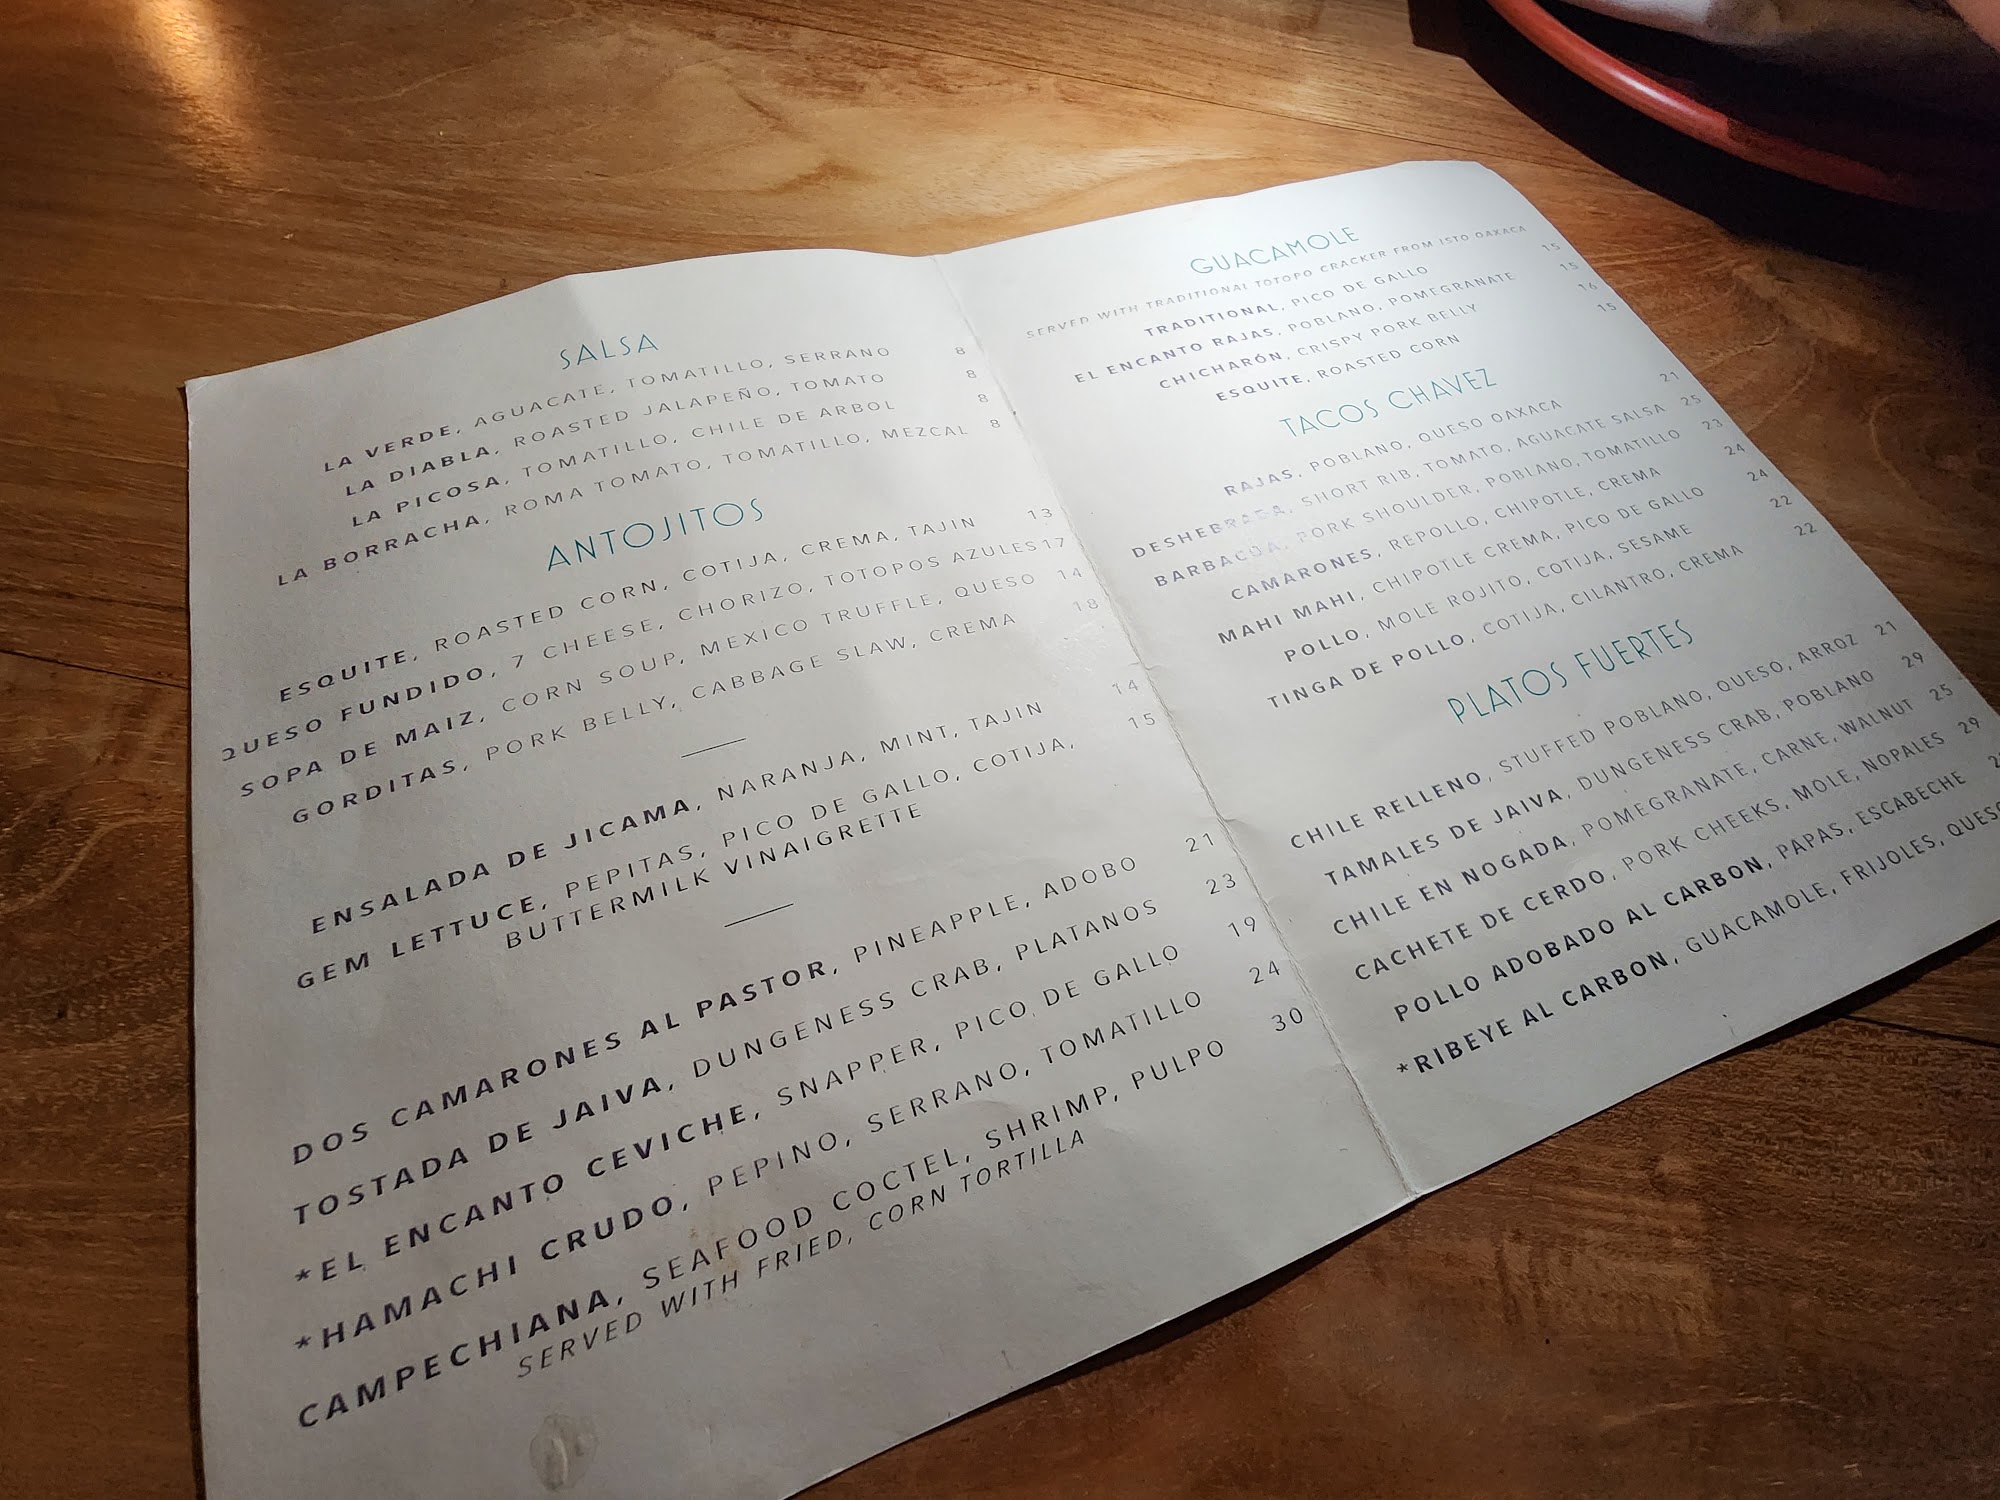 SALSA
LA VERDE, AGUACATE, TOMATILLO, SERRANO 8
LA DIABLA, ROASTED JALAPEÑO, TOMATO 8
LA PICOSA, TOMATILLO, CHILE DE ARBOL 8
LA BORRACHA, ROMA TOMATO, TOMATILLO, MEZCAL 8
ANTOJITOS
ESQUITE, ROASTED CORN, COTIJA, CREMA, TAJIN 13
QUESO FUNDIDO, 7 CHEESE, CHORIZO, TOTOPOS AZULES 17
SOPA DE MAIZ, CORN SOUP, MEXICO TRUFFLE, QUESO 14
GORDITAS, PORK BELLY, CABBAGE SLAW, CREMA 18
ENSALADA DE JICAMA, NARANJA, MINT, TAJIN 14
GEM LETTUCE, PEPITAS, PICO DE GALLO, COTIJA, 15
BUTTERMILK VINAIGRETTE
DOS CAMARONES AL PASTOR, PINEAPPLE, ADOBO 21
TOSTADA DE JAIVA, DUNGENESS CRAB, PLATANOS 23
*EL ENCANTO CEVICHE, SNAPPER, PICO DE GALLO 19
*HAMACHI CRUDO, PEPINO, SERRANO, TOMATILLO 24
CAMPECHIANA, SEAFOOD COCTEL, SHRIMP, PULPO 30
SERVED WITH FRIED, CORN TORTILLA
GUACAMOLE
SERVED WITH TRADITIONAL TOTOPO CRACKER FROM ISTO OAXACA
TRADITIONAL, PICO DE GALLO 15
EL ENCANTO RAJAS, POBLANO, POMEGRANATE 15
CHICHARÓN, CRISPY PORK BELLY 16
ESQUITE, ROASTED CORN 15
TACOS CHAVEZ
RAJAS, POBLANO, QUESO OAXACA 21
DESHEBRADA, SHORT RIB, TOMATO, AGUACATE SALSA 25
BARBACOA, PORK SHOULDER, POBLANO, TOMATILLO 23
CAMARONES, REPOLLO, CHIPOTLE, CREMA 24
MAHI MAHI, CHIPOTLE CREMA, PICO DE GALLO 24
POLLO, MOLE ROJITO, COTIJA, SESAME 22
TINGA DE POLLO, COTIJA, CILANTRO, CREMA 22
PLATOS FUERTES
CHILE RELLENO, STUFFED POBLANO, QUESO, ARROZ 21
TAMALES DE JAIVA, DUNGENESS CRAB, POBLANO 29
CHILE EN NOGADA, POMEGRANATE, CARNE, WALNUT 25
CACHETE DE CERDO, PORK CHEEKS, MOLE, NOPALES 29
POLLO ADOBADO AL CARBON, PAPAS, ESCABECHE
*RIBEYE AL CARBON, GUACAMOLE, FRIJOLES, QUESO